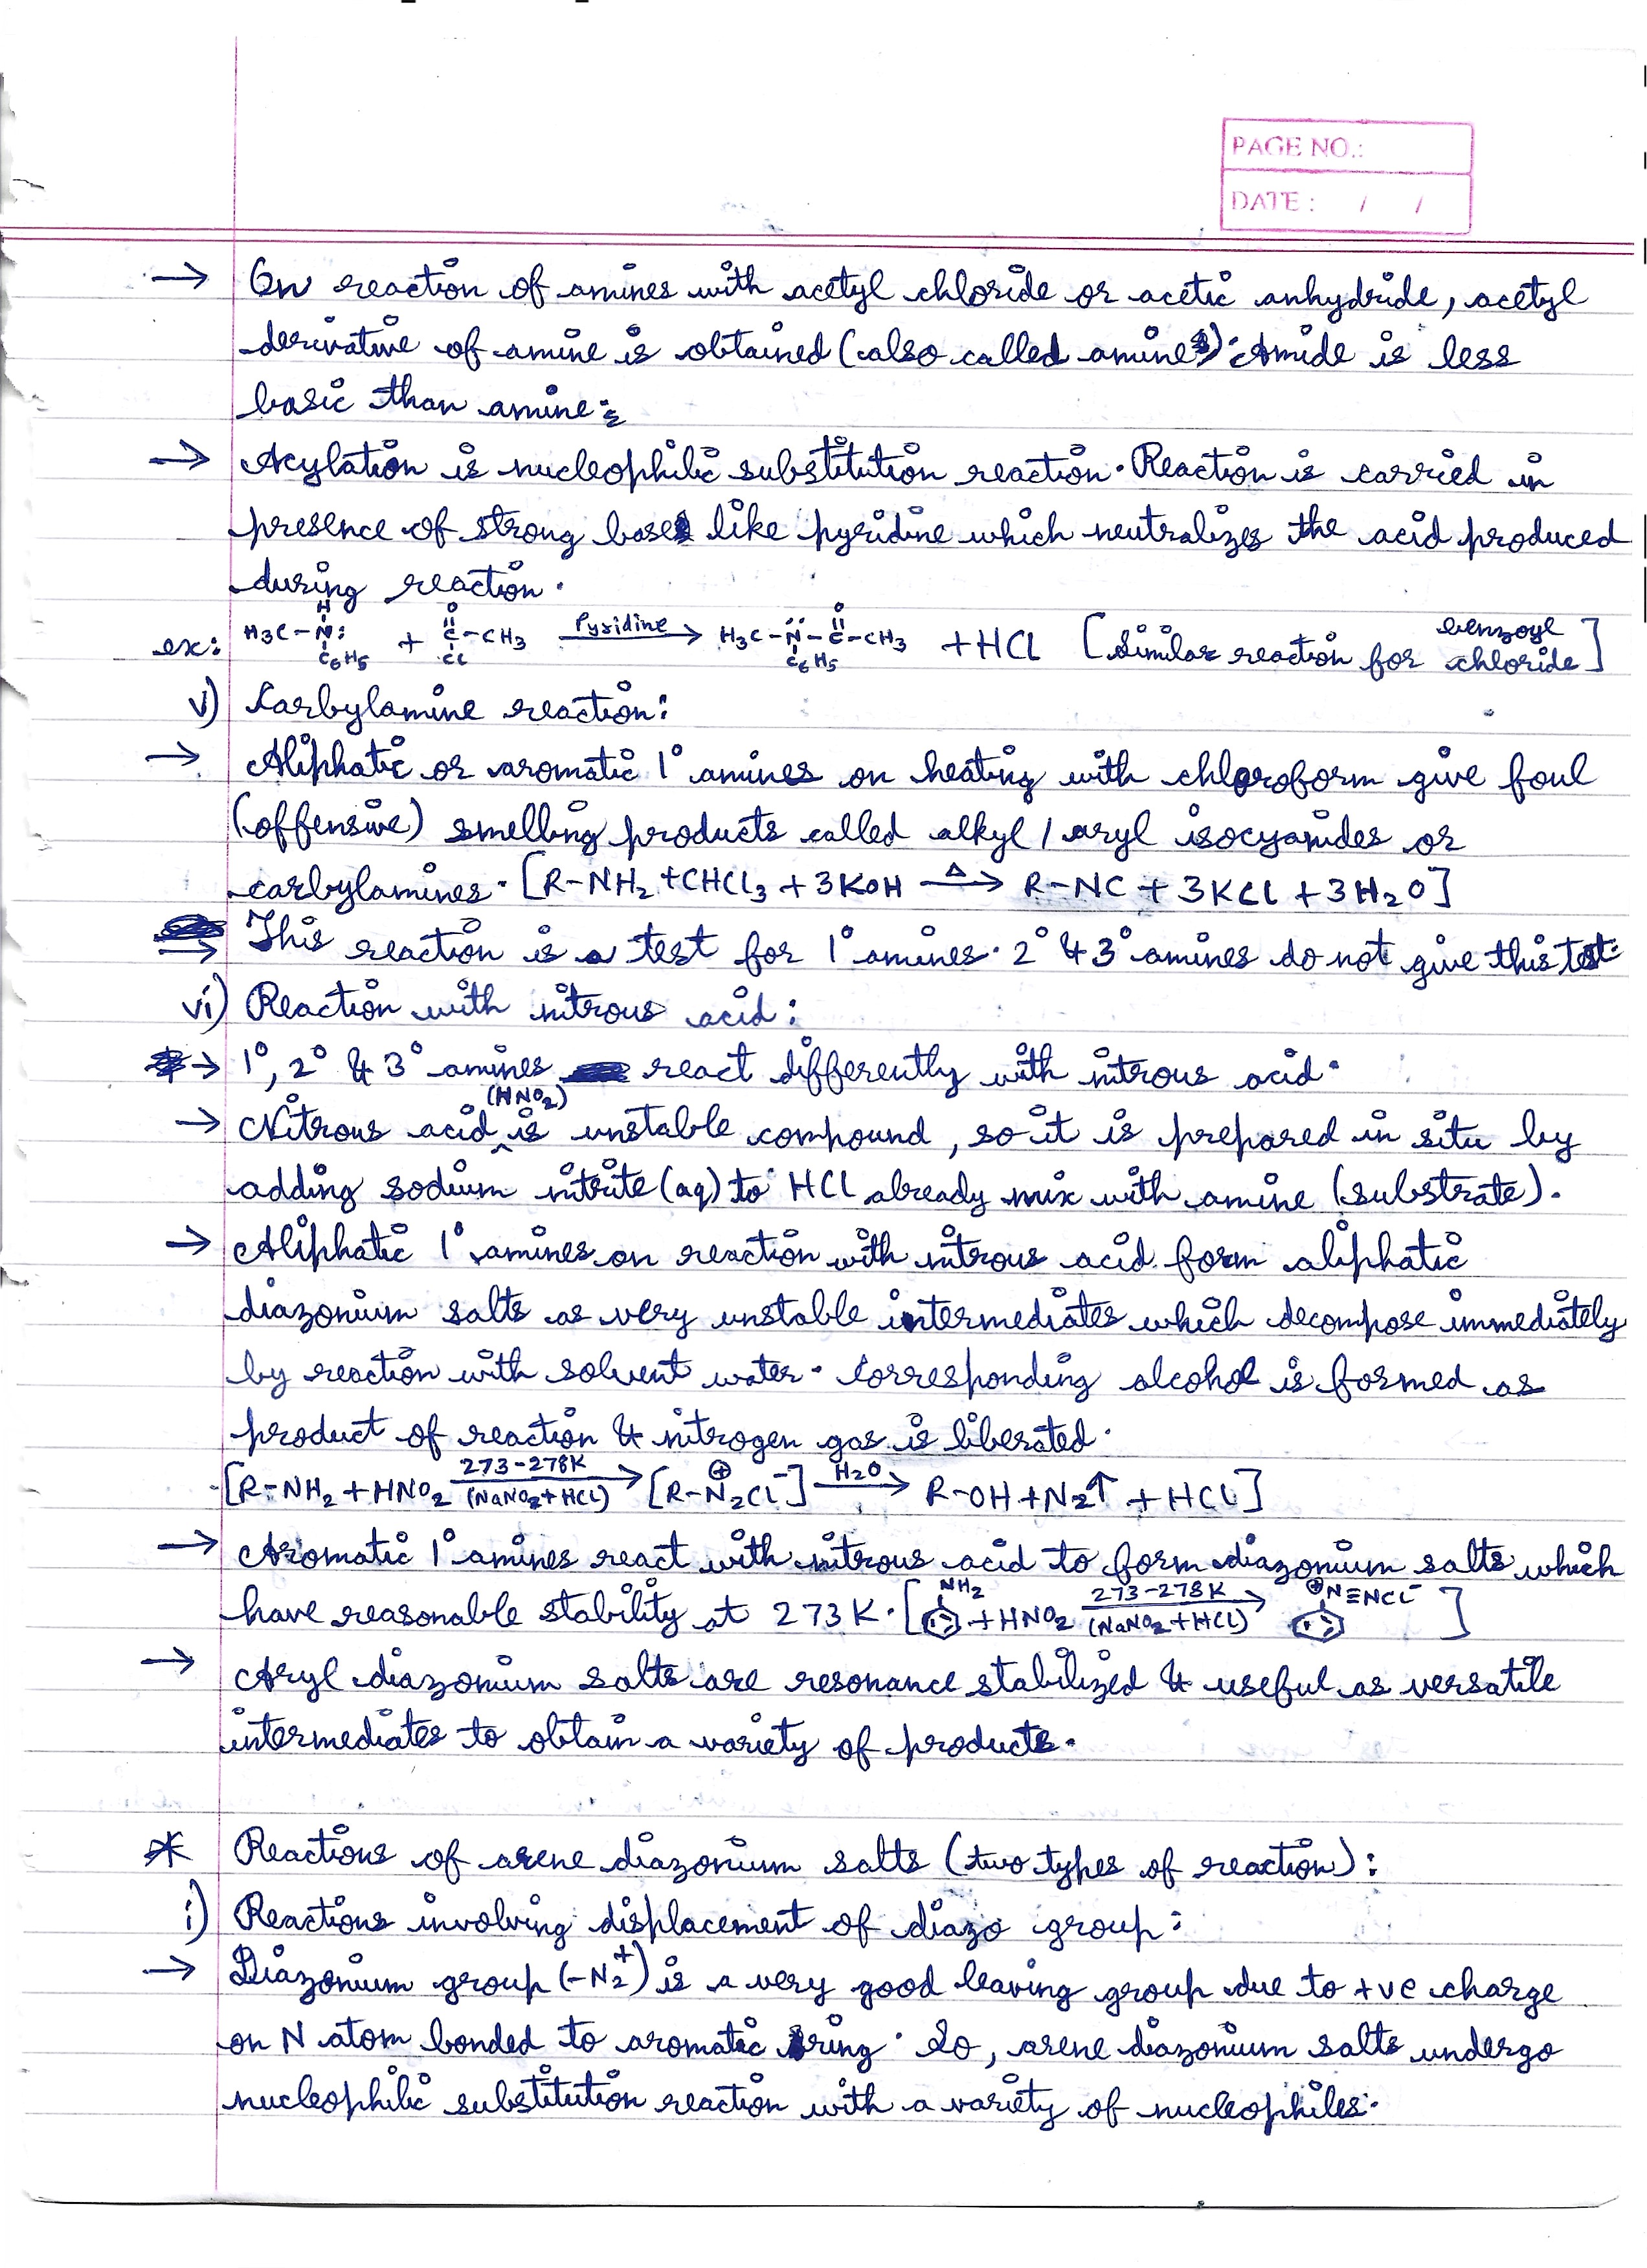 PAGE NO.:
DATE : / /
→ On reaction of amines with acetyl chloride or acetic anhydride, acetyl
derivative of amine is obtained (also called amines). Amide is less
basic than amine.
→ Acylation is nucleophilic substitution reaction. Reaction is carried in
presence of strong base like pyridine which neutralizes the acid produced
during reaction.
ex: H3C-N(H)(C6H5): + C(=O)(Cl)-CH3 Pyridine→ H3C-N̈(C6H5)-C(=O)-CH3 + HCl [Similar reaction for benzoyl chloride]
v) Carbylamine reaction:
→ Aliphatic or aromatic 1° amines on heating with chloroform give foul
(offensive) smelling products called alkyl / aryl isocyanides or
carbylamines. [R-NH2 + CHCl3 + 3KOH Δ→ R-NC + 3KCl + 3H2O]
→ This reaction is a test for 1° amines. 2° & 3° amines do not give this test.
vi) Reaction with nitrous acid:
→ 1°, 2° & 3° amines react differently with nitrous acid.
→ Nitrous acid (HNO2) is unstable compound, so it is prepared in situ by
adding sodium nitrite (aq) to HCl already mix with amine (substrate).
→ Aliphatic 1° amines on reaction with nitrous acid form aliphatic
diazonium salts as very unstable intermediates which decompose immediately
by reaction with solvent water. Corresponding alcohol is formed as
product of reaction & nitrogen gas is liberated.
[R-NH2 + HNO2 273-278K (NaNO2+HCl)→ [R-N⊕2Cl-] H2O→ R-OH + N2↑ + HCl]
→ Aromatic 1° amines react with nitrous acid to form diazonium salts which
have reasonable stability at 273K. [NH2 + HNO2 273-278K (NaNO2+HCl)→ ⊕N≡NCl-]
→ Aryl diazonium salts are resonance stabilized & useful as versatile
intermediates to obtain a variety of products.
* Reactions of arene diazonium salts (two types of reaction):
i) Reactions involving displacement of diazo group:
→ Diazonium group (-N2+) is a very good leaving group due to +ve charge
on N atom bonded to aromatic ring. So, arene diazonium salts undergo
nucleophilic substitution reaction with a variety of nucleophiles.